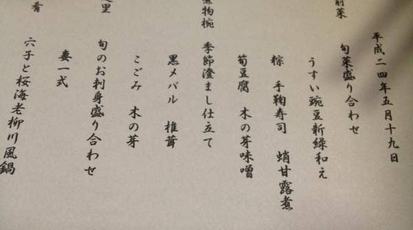 平成二四年五月十九日
前菜
旬菜盛り合わせ
うすい豌豆新緑和え
粽 手鞠寿司 蛸甘露煮
筍豆腐 木の芽味噌
煮物椀
季節澄まし仕立て
黒メバル 椎茸
こごみ 木の芽
里
旬のお刺身盛り合わせ
妻一式
肴
六子と桜海老柳川風鍋